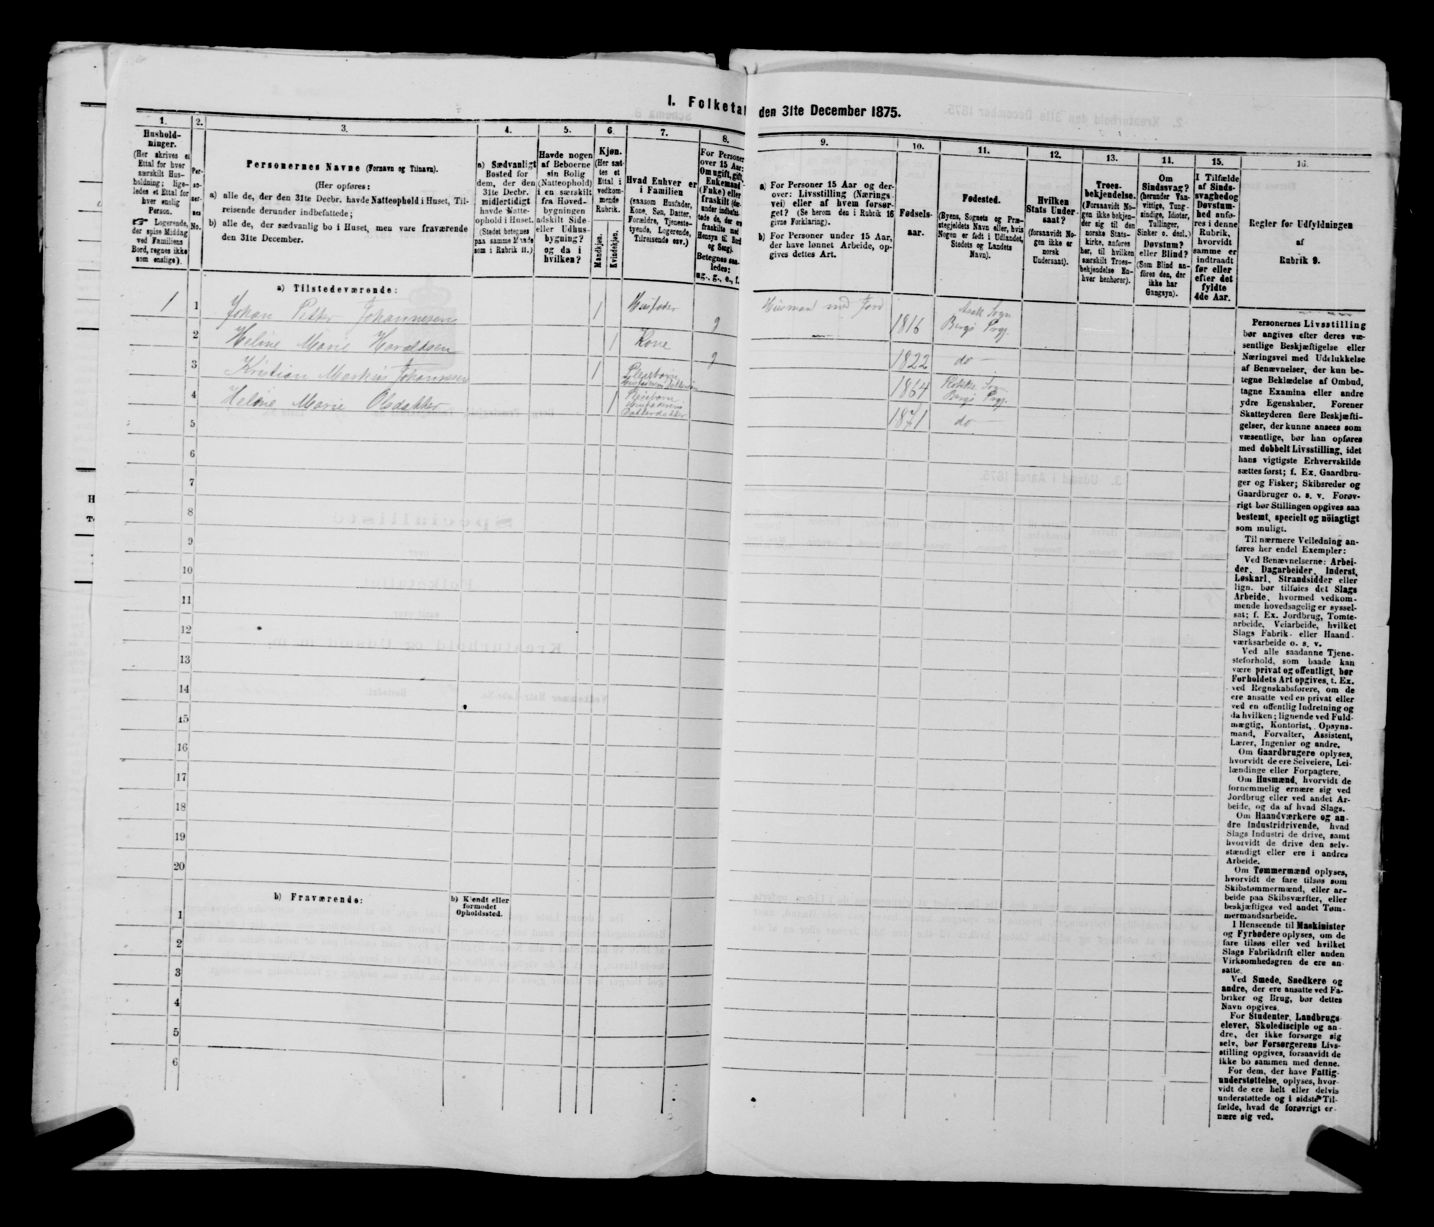 I. Folketal
den 31te December 1875.
1.
Hushold-
ninger.
(Her skrives et
Ettal for hver
særskilt Hus-
holdning; lige-
ledes et Ettal for
hver enslig
Person.
☞ Logerende,
der spise Middag
ved Familiens
Bord, regnes ikke
som enslige).
2.
Per-
so-
ner-
nes
No.
3.
Personernes Navne (Fornavn og Tilnavn).
(Her opføres:
a) alle de, der den 31te Decbr. havde Natteophold i Huset, Til-
reisende derunder indbefattede;
b) alle de, der sædvanlig bo i Huset, men vare fraværende
den 31te December.
4.
a) Sædvanligt
Bosted for
dem, der den
31te Decbr.
midlertidigt
havde Natte-
ophold i Huset.
(Stedet betegnes
paa samme Maade
som i Rubrik 11.)
5.
Havde nogen
af Beboerne
sin Bolig
(Natteophold)
i en særskilt
fra Hoved-
bygningen
adskilt Side
eller Udhus-
bygning?
og da i
hvilken?
6.
Kjøn.
(Her sæt-
tes et
Ettal i
vedkom-
mende
Rubrik.
Mandkjøn.
Kvindekjøn.
7.
Hvad Enhver er
i Familien
(saasom Husfader,
Kone, Søn, Datter,
Forældre, Tjeneste-
tyende, Logerende,
Tilreisende osv.)
8.
For Personer
over 15 Aar:
Om ugift, gift,
Enkemand
(Enke) eller
fraskilt
Betegnes saa-
ledes:
ug., g., e., f.
9.
a) For Personer 15 Aar og der-
over: Livsstilling (Nærings-
vei) eller af hvem forsør-
get? (Se herom den i Rubrik 16
givne Forklaring).
b) For Personer under 15 Aar,
der have lønnet Arbeide, op-
gives dettes Art.
10.
Fødsels-
aar.
11.
Fødested.
(Byens, Sognets og Præ-
stegjeldets Navn eller, hvis
Nogen er født i Udlandet,
Stedets og Landets
Navn).
12.
Hvilken
Stats Under-
saat?
(foraavidt No-
gen ikke er
norsk
Undersaat).
13.
Troes-
bekjendelse.
(Forsaavidt No-
gen ikke bekjen-
der sig til den
norske Stats-
kirke, anføres
her, til hvilken
særskilt Troes-
bekjendelse En-
hver henhører).
14.
Om
Sindssvag?
(herunder Van-
vittige, Tung-
sindige, Idioter,
Tullinger,
Sinker o. desl.)
Døvstum?
eller Blind?
(Som Blind an-
føres den, der
ikke har
Gangsyn).
15.
I Tilfælde
af Sinds-
svaghed og
Døvstum-
hed anfø-
res i denne
Rubrik,
hvorvidt
samme er
indtraadt
før eller
efter det
fyldte
4de Aar.
16.
Regler for Udfyldningen
af
Rubrik 9.
a) Tilstedeværende:
1 1 Johan Petter Johannesen 1 Husfader g Husmand med Jord 1816 Asak Sogn Bergs Prgj.
2 Heline Marie Haraldsen 1 Kone g 1822 do —
3 Kristian Markus Johannesen 1 Pleiebarn 1864 Bergs Prgj.
4 Heline Marie Olsdatter 1 Pleiebarn Husfaderens Datterdatter 1871 do —
5
6
7
8
9
10
11
12
13
14
15
16
17
18
19
20
b) Fraværende:
b) Kjendt eller
formodet
Opholdssted.
1
2
3
4
5
6
Personernes Livsstilling
bør angives efter deres væ-
sentlige Beskjæftigelse eller
Næringsvei med Udelukkelse
af Benævnelser, der kun be-
tegne Beklædelse af Ombud,
tagne Examina eller andre
ydre Egenskaber. Forener
Skatteyderen flere Beskjæfti-
gelser, der kunne ansees som
væsentlige, bør han opføres
med dobbelt Livsstilling, idet
hans vigtigste Erhvervskilde
sættes først; f. Ex. Gaardbru-
ger og Fisker; Skibsreder og
Gaardbruger o. s. v. Forøv-
rigt bør Stillingen opgives saa
bestemt, specielt og nøiagtigt
som muligt.
Til nærmere Veiledning an-
føres her endel Exempler:
Ved Benævnelserne: Arbei-
der, Dagarbeider, Inderst,
Løskarl, Strandsidder eller
lign. bør tilføies det Slags
Arbeide, hvormed vedkom-
mende hovedsagelig er syssel-
sat; f. Ex. Jordbrug, Tomte-
arbeide, Veiarbeide, hvilket
Slags Fabrik- eller Haand-
værksarbeide o. s. v.
Ved alle saadanne Tjene-
steforhold, som baade kan
være privat og offentligt, bør
Forholdets Art opgives, t. Ex.
ved Regnskabsførere, om de
ere ansatte ved en privat eller
ved en offentlig Indretning og
da hvilken; lignende ved Fuld-
mægtig, Kontorist, Opsyns-
mand, Forvalter, Assistent,
Lærer, Ingeniør og andre.
Om Gaardbrugere oplyses,
hvorvidt de ere Selveiere, Lei-
lændinge eller Forpagtere.
Om Husmænd, hvorvidt de
fornemmelig ernære sig ved
Jordbrug eller ved andet Ar-
beide, og da af hvad Slags.
Om Haandværkere og an-
dre Industridrivende, hvad
Slags Industri de drive, samt
hvorvidt de drive den selv-
stændigt eller ere i andres
Arbeide.
Om Tømmermænd oplyses,
hvorvidt de fare tilsøs som
Skibstømmermænd, eller ar-
beide paa Skibsværfter, eller
beskjæftiges ved andet Tøm-
mermandsarbeide.
I Henseende til Maskinister
og Fyrbødere oplyses, om de
fare tilsøs eller ved hvilket
Slags Fabrikdrift eller anden
Virksomhedsgren de ere an-
satte.
Ved Smede, Snedkere og
andre, der ere ansatte ved Fa-
briker og Brug, bør dettes
Navn opgives.
For Studenter, Landbrugs
elever, Skoledisciple og an-
dre, der ikke forsørge sig
selv, bør Forsørgerens Livs-
stilling opgives, forsaavidt de
ikke bo sammen med denne.
For dem, der have Fattig-
understøttelse, oplyses, hvor-
vidt de ere helt eller delvis
understøttede og i sidste Til-
fælde, hvad de forøvrigt er-
nære sig ved.